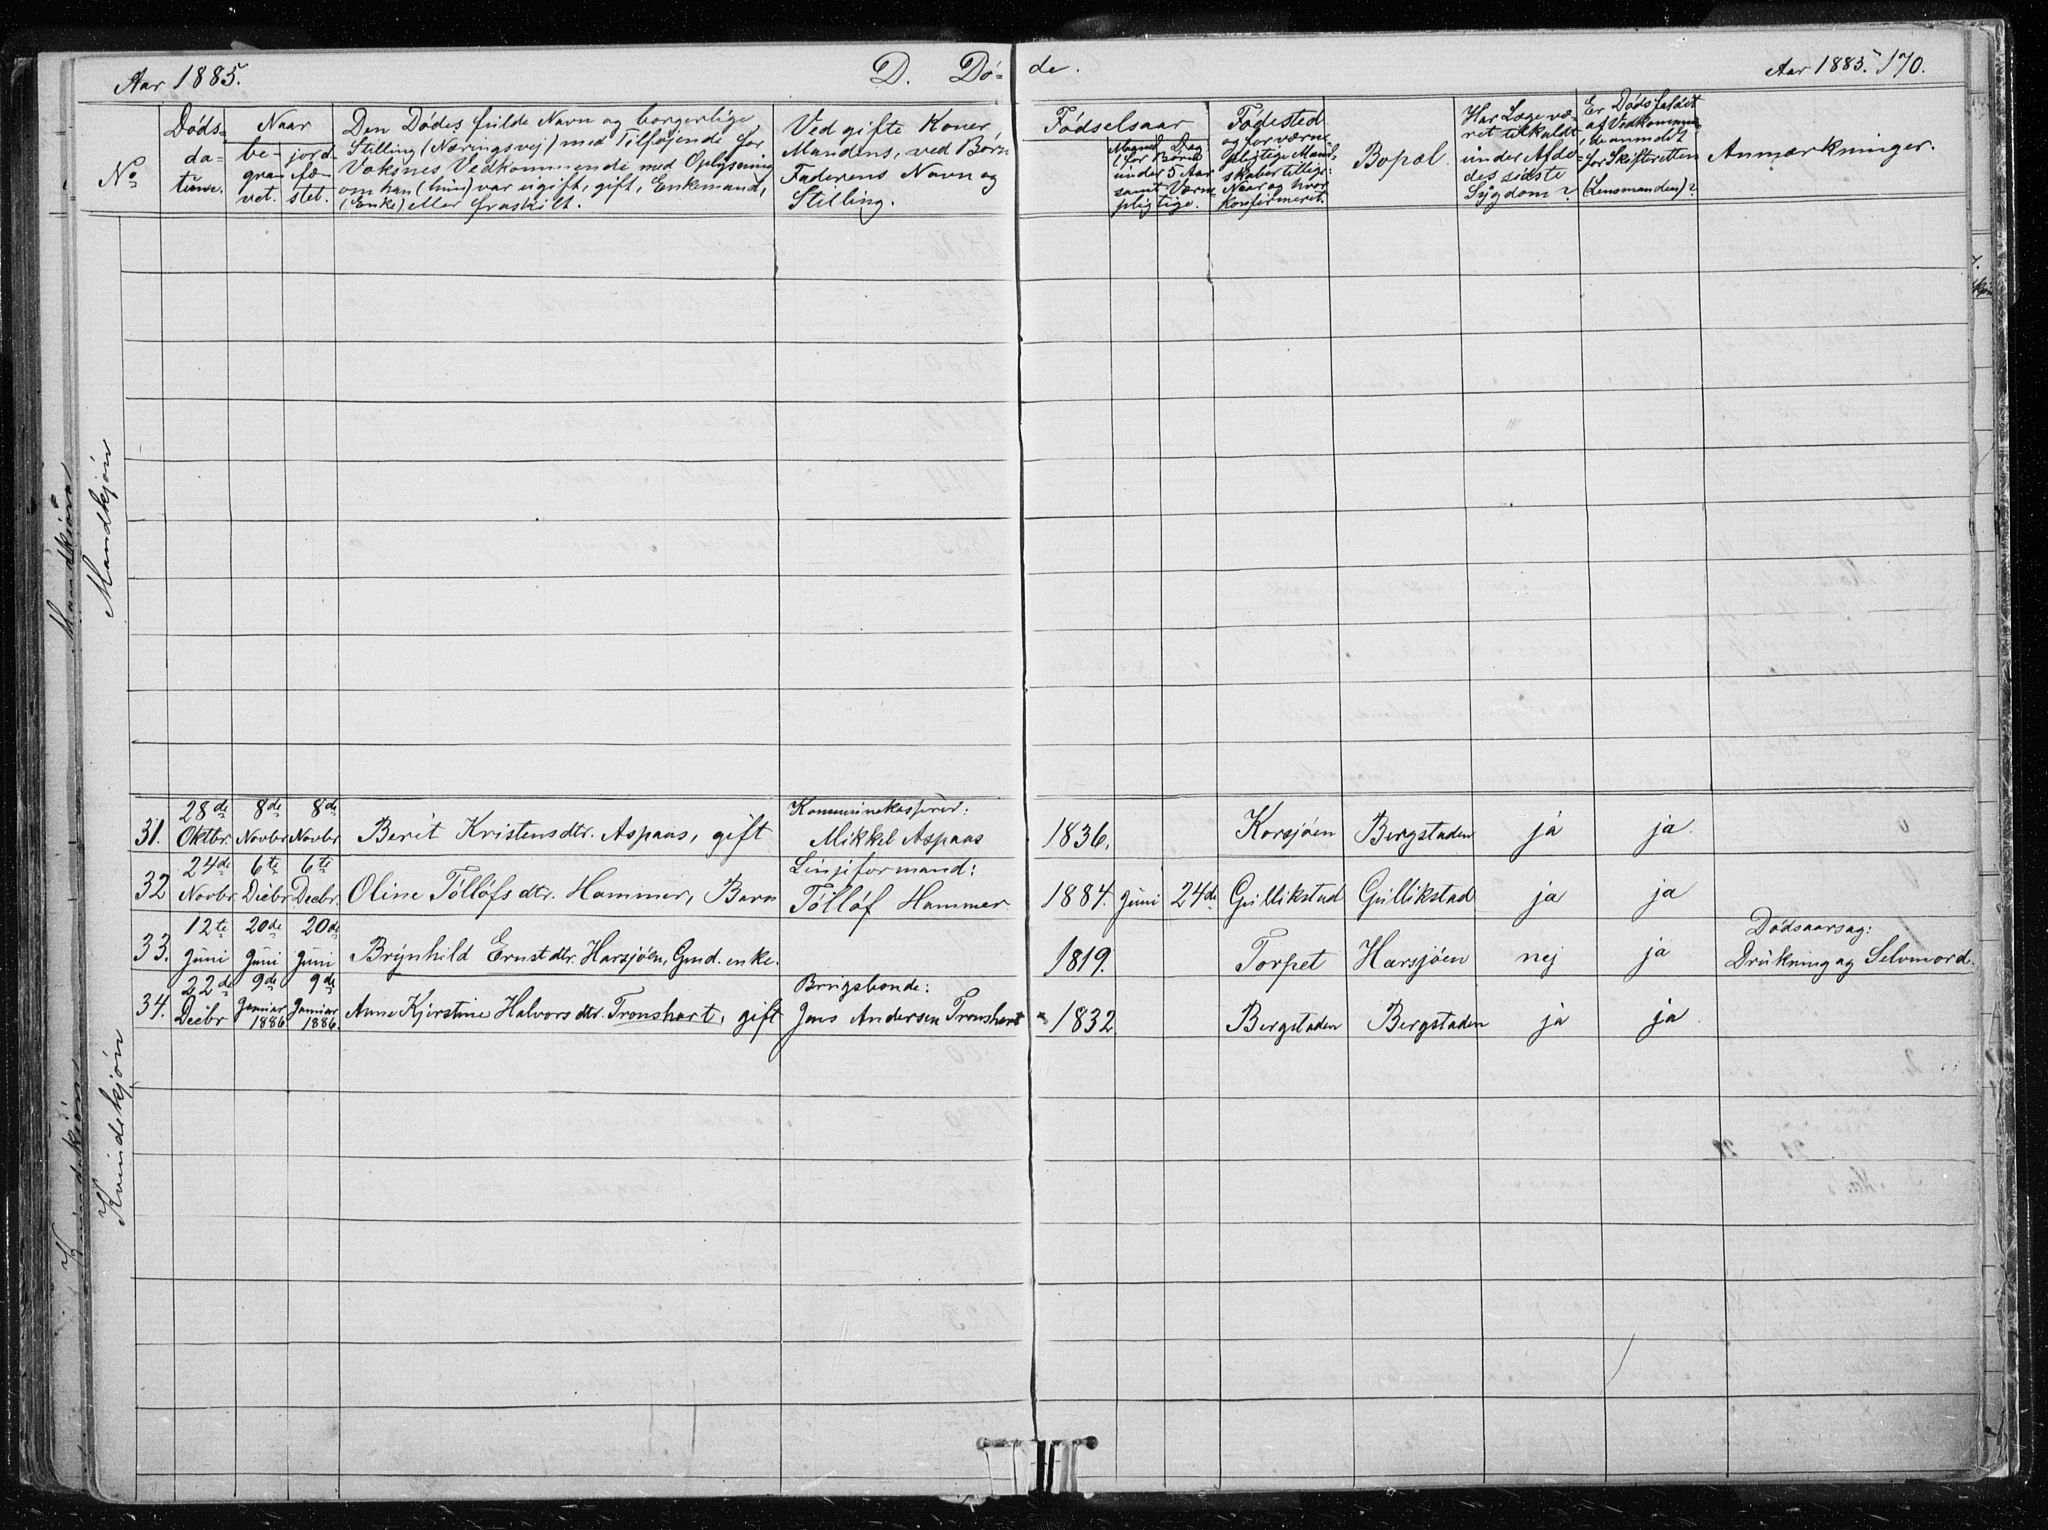 Aar 1885.
D. Dö-
de.
Aar 1885. 170.
No
Døds-
da-
tum.
Naar
be-
gra-
vet.
jord-
fæ-
stet.
Den Dødes fulde Navn og borgerlige
Stilling (Næringsvej) med Tilføjende for
Voksnes Vedkommende med Oplysning
om han (hun) var ugift, gift, Enkemand,
(Enke) eller fraskilt.
Ved gifte Koner
Mandens, ved Børn
Faderens Navn og
Stilling.
Fødselsaar
Maaned Dag
(for Børn
under 5 Aar
samt Værne
pligtige.
Fødested
og for værne
pligtige Mand-
skaber tillige:
Naar og hvor
konfirmeret.
Bopæl.
Har Læge væ-
ret tilkaldt
under Afdø-
des sidste
Sygdom?
Er Dødsfaldet
af Vedkommen-
de anmeldt
for Skifteretten
(Lensmanden)?
Anmærkninger.
Mandkjøn
Mandkjøn
28de 8de 8de Kommunekasserer:
31. Oktbr. Novbr Novbr Berit Kristensdtr. Aspaas, gift Mikkel Aspaas 1836. Korsjøen Bergstaden ja ja.
24de 6te 6te Linjeformand:
32 Novbr. Decbr Decbr. Oline Tøllöfsdtr. Hammer, Barn Tøllöf Hammer 1884. Juni 24de Gullikstad Gullikstad ja ja
12te 20de 20de Dødsaarsag:
33. Juni Juni Juni Brynhild Ernstdtr. Harsjøen, Gmd. enke. 1819. Torpet Harsjøen nej ja Drukning og Selvmord.
22de 9de 9de Brugsbonde:
34. Decbr Januar 1886 Januar 1886. Anne Kjerstine Halvorsdtr. Tronshart, gift Jens Andersen Tronshart 1832 Bergstaden Bergstaden ja ja
Kvindekjøn
Kvindekjøn